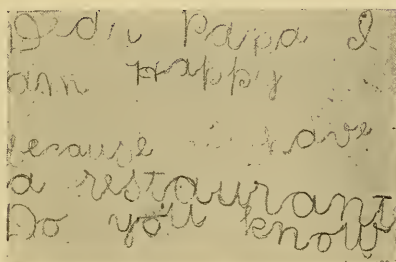 Dear Papa I
am Happy
because have
a restaurant
Do you know